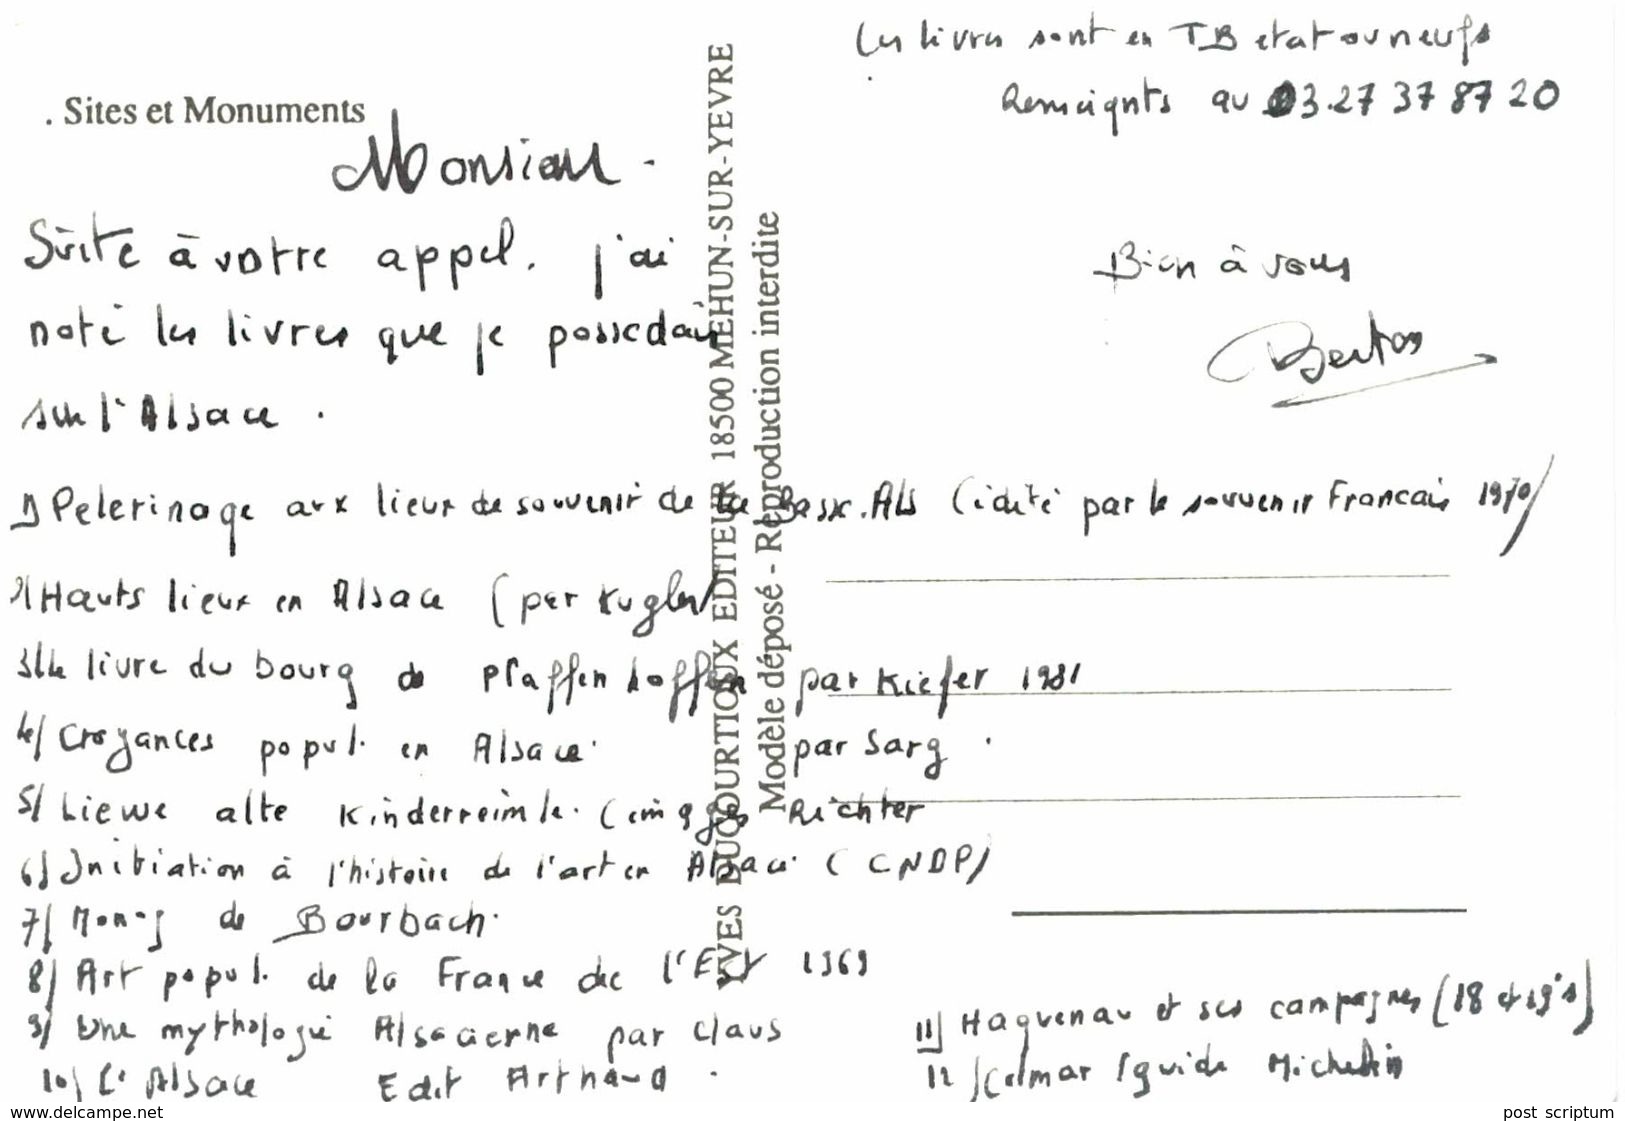 . Sites et Monuments
Monsieur.
Suite à votre appel. j'ai
noté les livres que je possedais
sur l'Alsace.
1) Pelerinage aux lieux de souvenir de Basse.Als (édité par le souvenir Francais 1970/
2/ Hauts lieux en Alsace (par Kugler)
3/ le livre du bourg de Pfaffenhoffen par Kiefer 1981
4/ Croyances popul. en Alsace. par Sarg.
5/ Liewe alte Kinderreimle. Richter
6) Initiation à l'histoire de l'art en Alsace (CNDP)
7/ de Bourbach.
8/ Art popul. de la France de l'Est 1969
9/ Une mythologie Alsacienne par Claus
10/ L'Alsace Edit Arthaud.
11) Haguenau et ses campagnes (18 et 19's)
12/ Colmar (guide Michelin
Les livres sont en TB etat ou neufs
Remseignts au 03.27 37 87 20
Bien à vous
YVES DUCOURTIOUX EDITEUR 18500 MEHUN-SUR-YEVRE
Modèle déposé - Reproduction interdite
www.delcampe.net
post scriptum